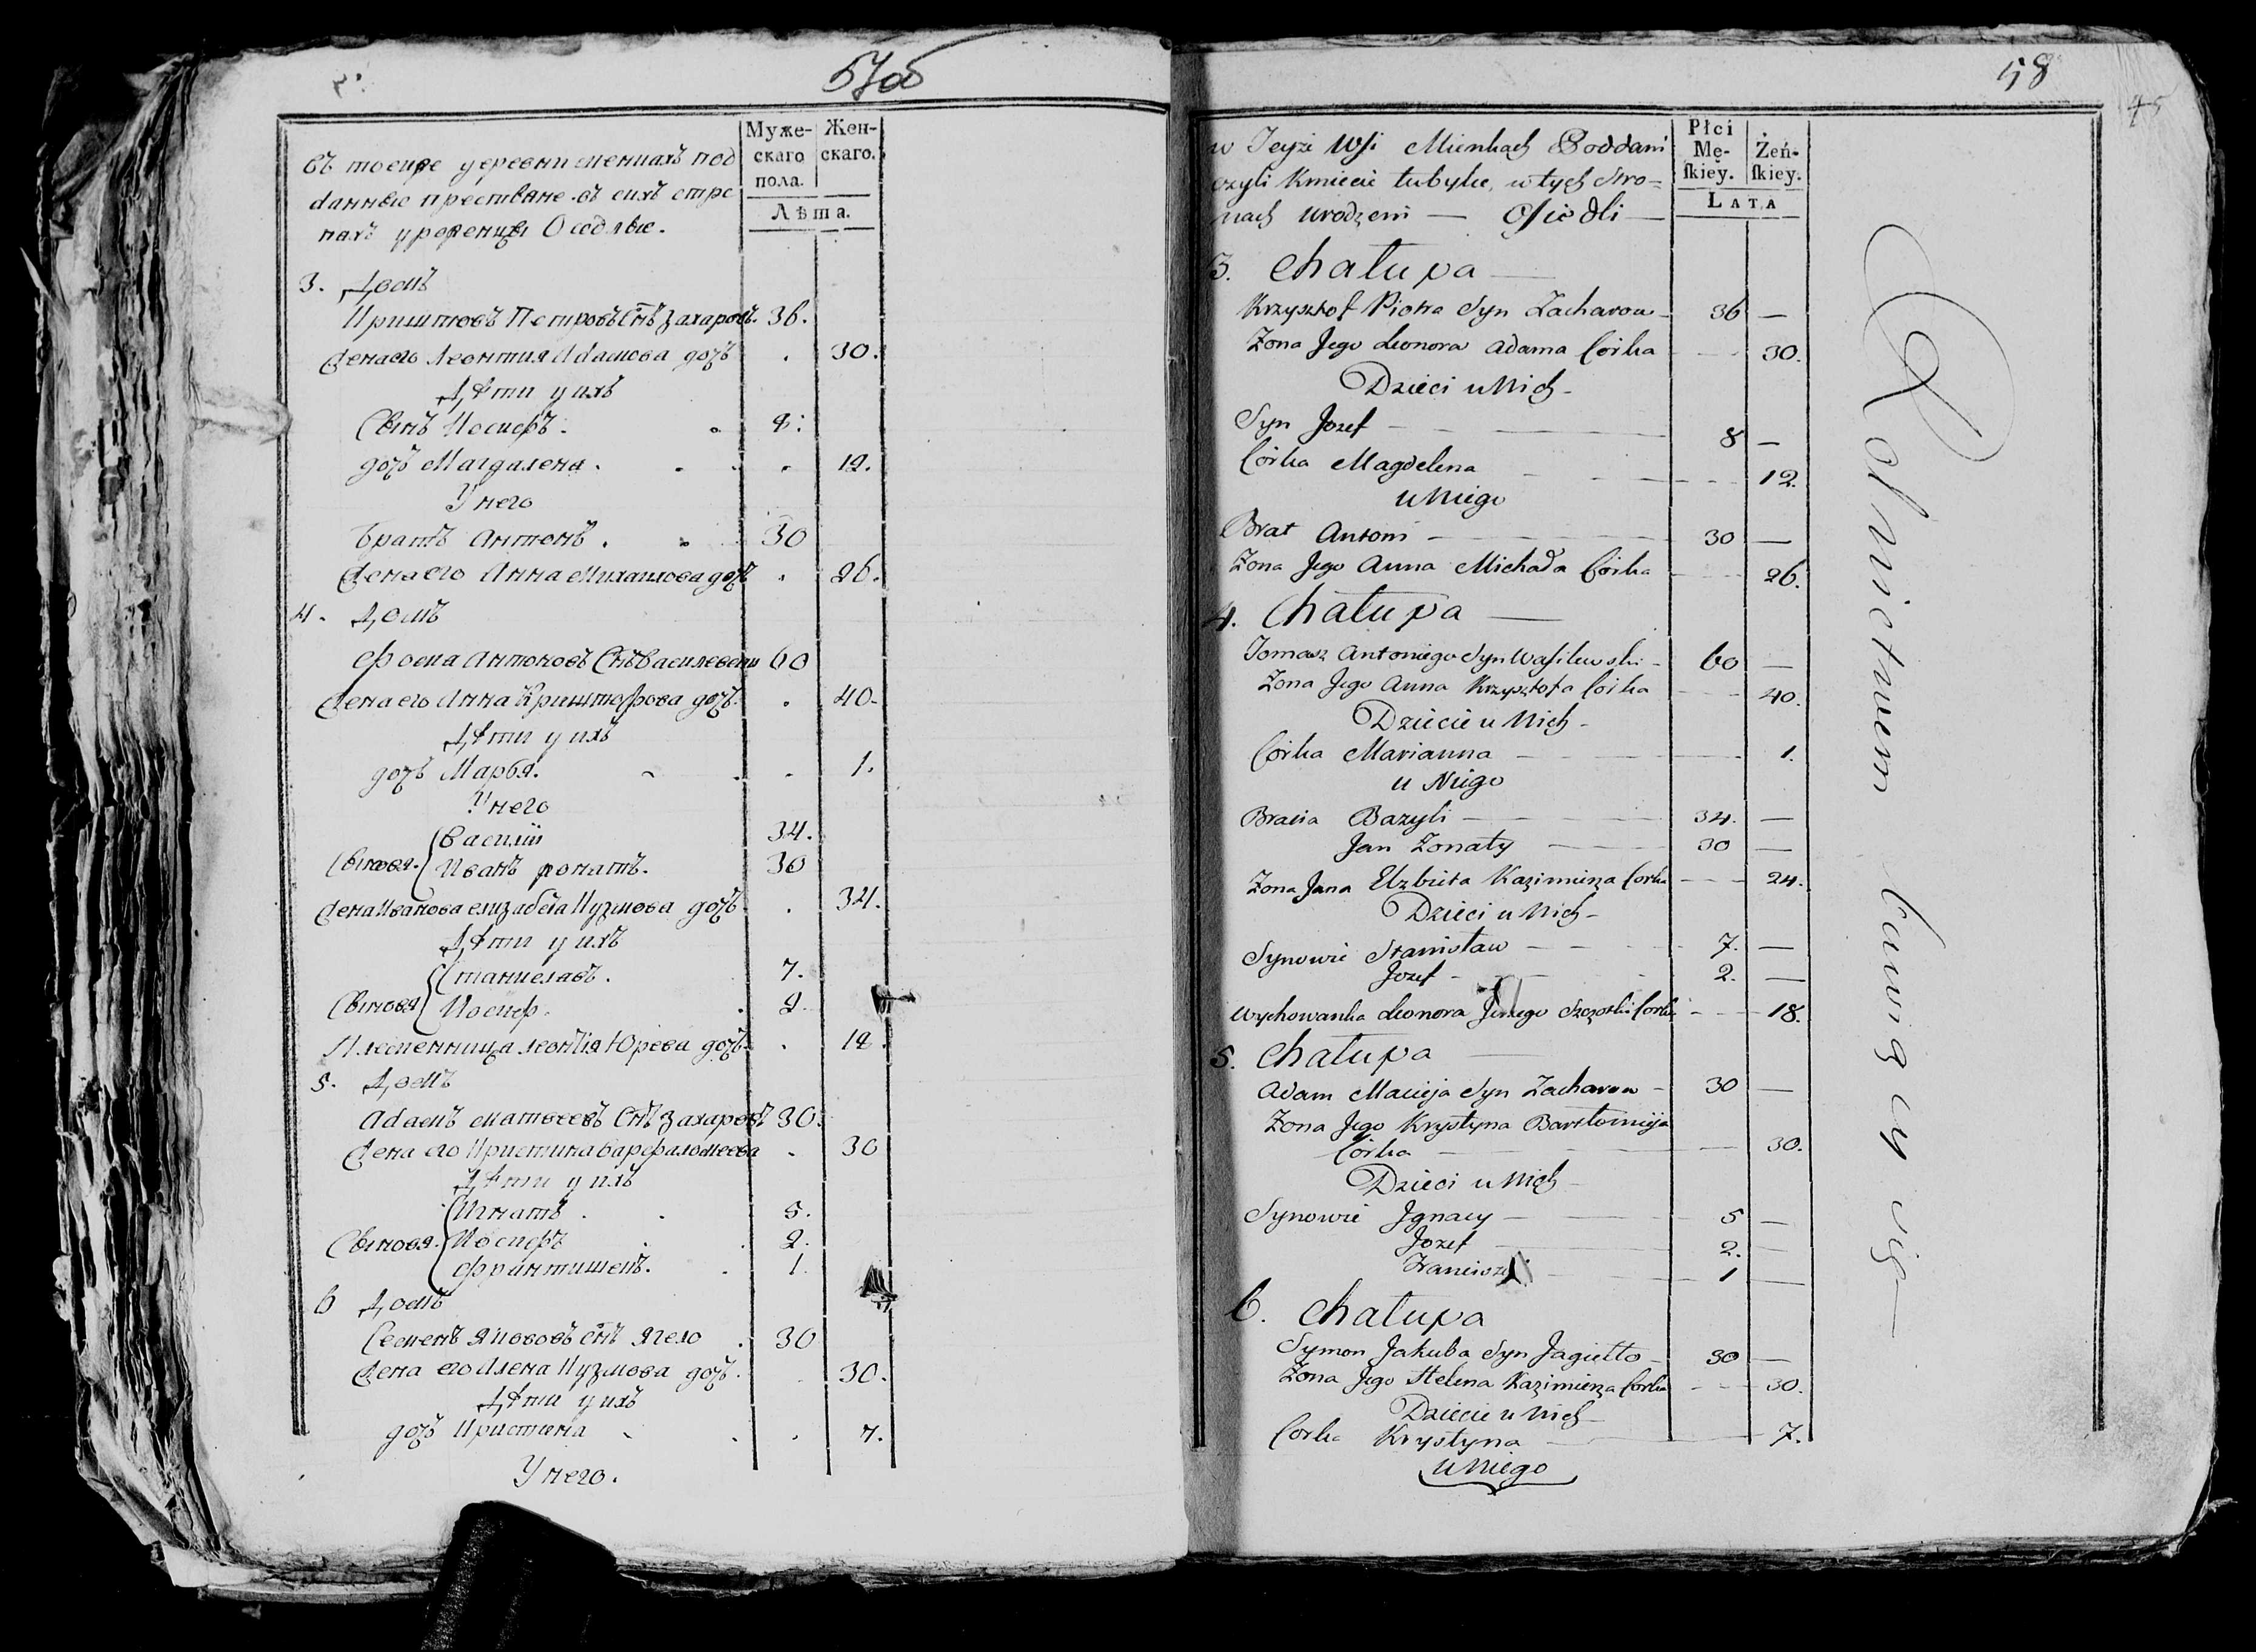 57об
Муже-
скаго
пола.
Жен-
скаго.
Лѣта.
въ тоейже деревни Менкахъ под
данные крестьяне въ сихъ стро
нахъ уроженцы Оседлые.
3. Домъ
Криштофъ Петровъ Снъ Захаровъ. 36.
Жена его Леонтия Адамова дочь . 30.
Дѣти у ихъ
Сынъ Иосифъ . 8.
дочь Магдалена . 12.
У него
Братъ Антонъ . 30
Жена его Анна Михаилова дочь . 26.
4. Домъ
Фома Антоновъ Снъ Василевски 60
Жена его Анна Криштофова дочь . 40.
Дѣти у ихъ
дочь Марья. 1.
У него
Василій 34.
Сыновя. Иванъ жонатъ. 30
Жена Иванова елизабета Кузмова дочь . 34.
Дѣти у ихъ
Станиславъ. 7.
Сыновя Иосиф. 2.
Племенница леонтія Юрева дочь . 18.
5. Домъ
Адамъ Матвеевъ Снъ Захаровъ 30.
Жена его Кристина варфаломеева . 30
Дѣти у ихъ
Игнатъ . 5.
Сыновя. Иосифъ 2.
Франтишекъ. 1.
6 Домъ
Семенъ Якововъ Снъ Ягело . 30
Жена его Алена Кузмова дочь . 30.
Дѣти у ихъ
дочь Кристина . 7.
У него.
58
45
Płci
Mę-
ſkiey.
Żeń-
ſkiey.
LATA
w Teyże Wsi Mienkach Poddani
czyli Kmiecie tubylce, w tych Stro=
nach urodzeni — Osiedli —
3. Chałupa —
Krzysztof Piotra Syn Zacharow — 36 —
Zona Jego Leonora Adama Corka — 30.
Dzieci u Nich —
Syn Jozef — 8 —
Corka Magdelena — 12.
u Niego
Brat Antoni — 30 —
Zona Jego Anna Michała Corka — 26.
4. Chałupa —
Tomasz Antoniego Syn Wasilewski — 60 —
Zona Jego Anna Krzysztofa Corka — 40.
Dziecie u Nich —
Corka Marianna — 1.
u Niego
Bracia Bazyli — 34. —
Jan Zonaty — 30 —
Zona Jana Elzbieta Kazimierza Corka — 24.
Dzieci u Nich —
Synowie Stanisław — 7. —
Jozef — 2. —
Wychowanka Leonora Jerzego Corka — 18.
5. Chałupa —
Adam Macieja Syn Zacharow — 30 —
Zona Jego Krystyna Barttomieja
Corka — 30.
Dzieci u Nich —
Synowie Jgnacy — 5 —
Jozef — 2. —
Franciszek — 1 —
6. Chałupa
Symon Jakuba Syn Jagiełło — 30 —
Zona Jego Helena Kazimierza Corka — 30.
Dziecie u Nich —
Corka Krystyna — 7.
u Niego